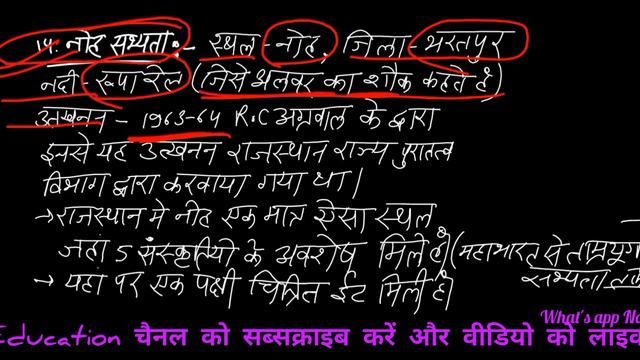 14. नोह सभ्यता :- स्थल - नोह, जिला - भरतपुर
नदी - रूपारेल (जिसे अलवर का शौक कहते है)
उत्खनन - 1963-64 R.C अग्रवाल के द्वारा
इनसे यह उत्खनन राजस्थान राज्य पुरातत्व
विभाग द्वारा करवाया गया था।
→ राजस्थान मे नोह एक मात्र ऐसा स्थल
जहां 5 संस्कृतियो के अवशेष मिले है। (महाभारत से ताम्रयुग
सभ्यता तक
→ यहां पर एक पक्षी चित्रित ईट मिली है।
What's app No
Education चैनल को सब्सक्राइब करें और वीडियो को लाइक